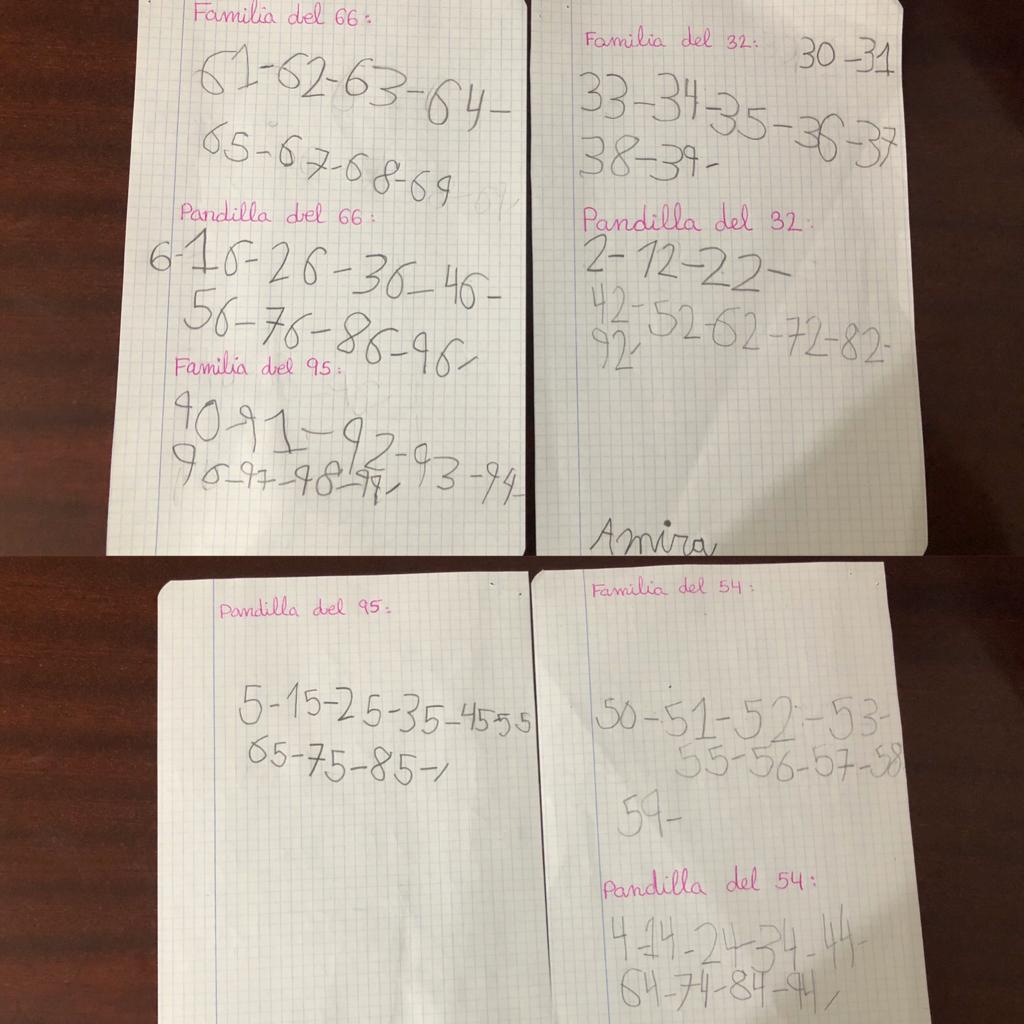 Familia del 66:
61-62-63-64-
65-67-68-69
Pandilla del 66:
6-16-26-36-46-
56-76-86-96,
Familia del 95:
90-91-92-93-94-
96-97-98-99,
Familia del 32: 30-31
33-34-35-36-37
38-39-
Pandilla del 32:
2-12-22-
42-52-62-72-82-
92,
Amira
Pandilla del 95:
5-15-25-35-4555
65-75-85-,
Familia del 54:
50-51-52-53-
55-56-57-58
59-
Pandilla del 54:
4-14-24-34-44-
64-74-84-94,